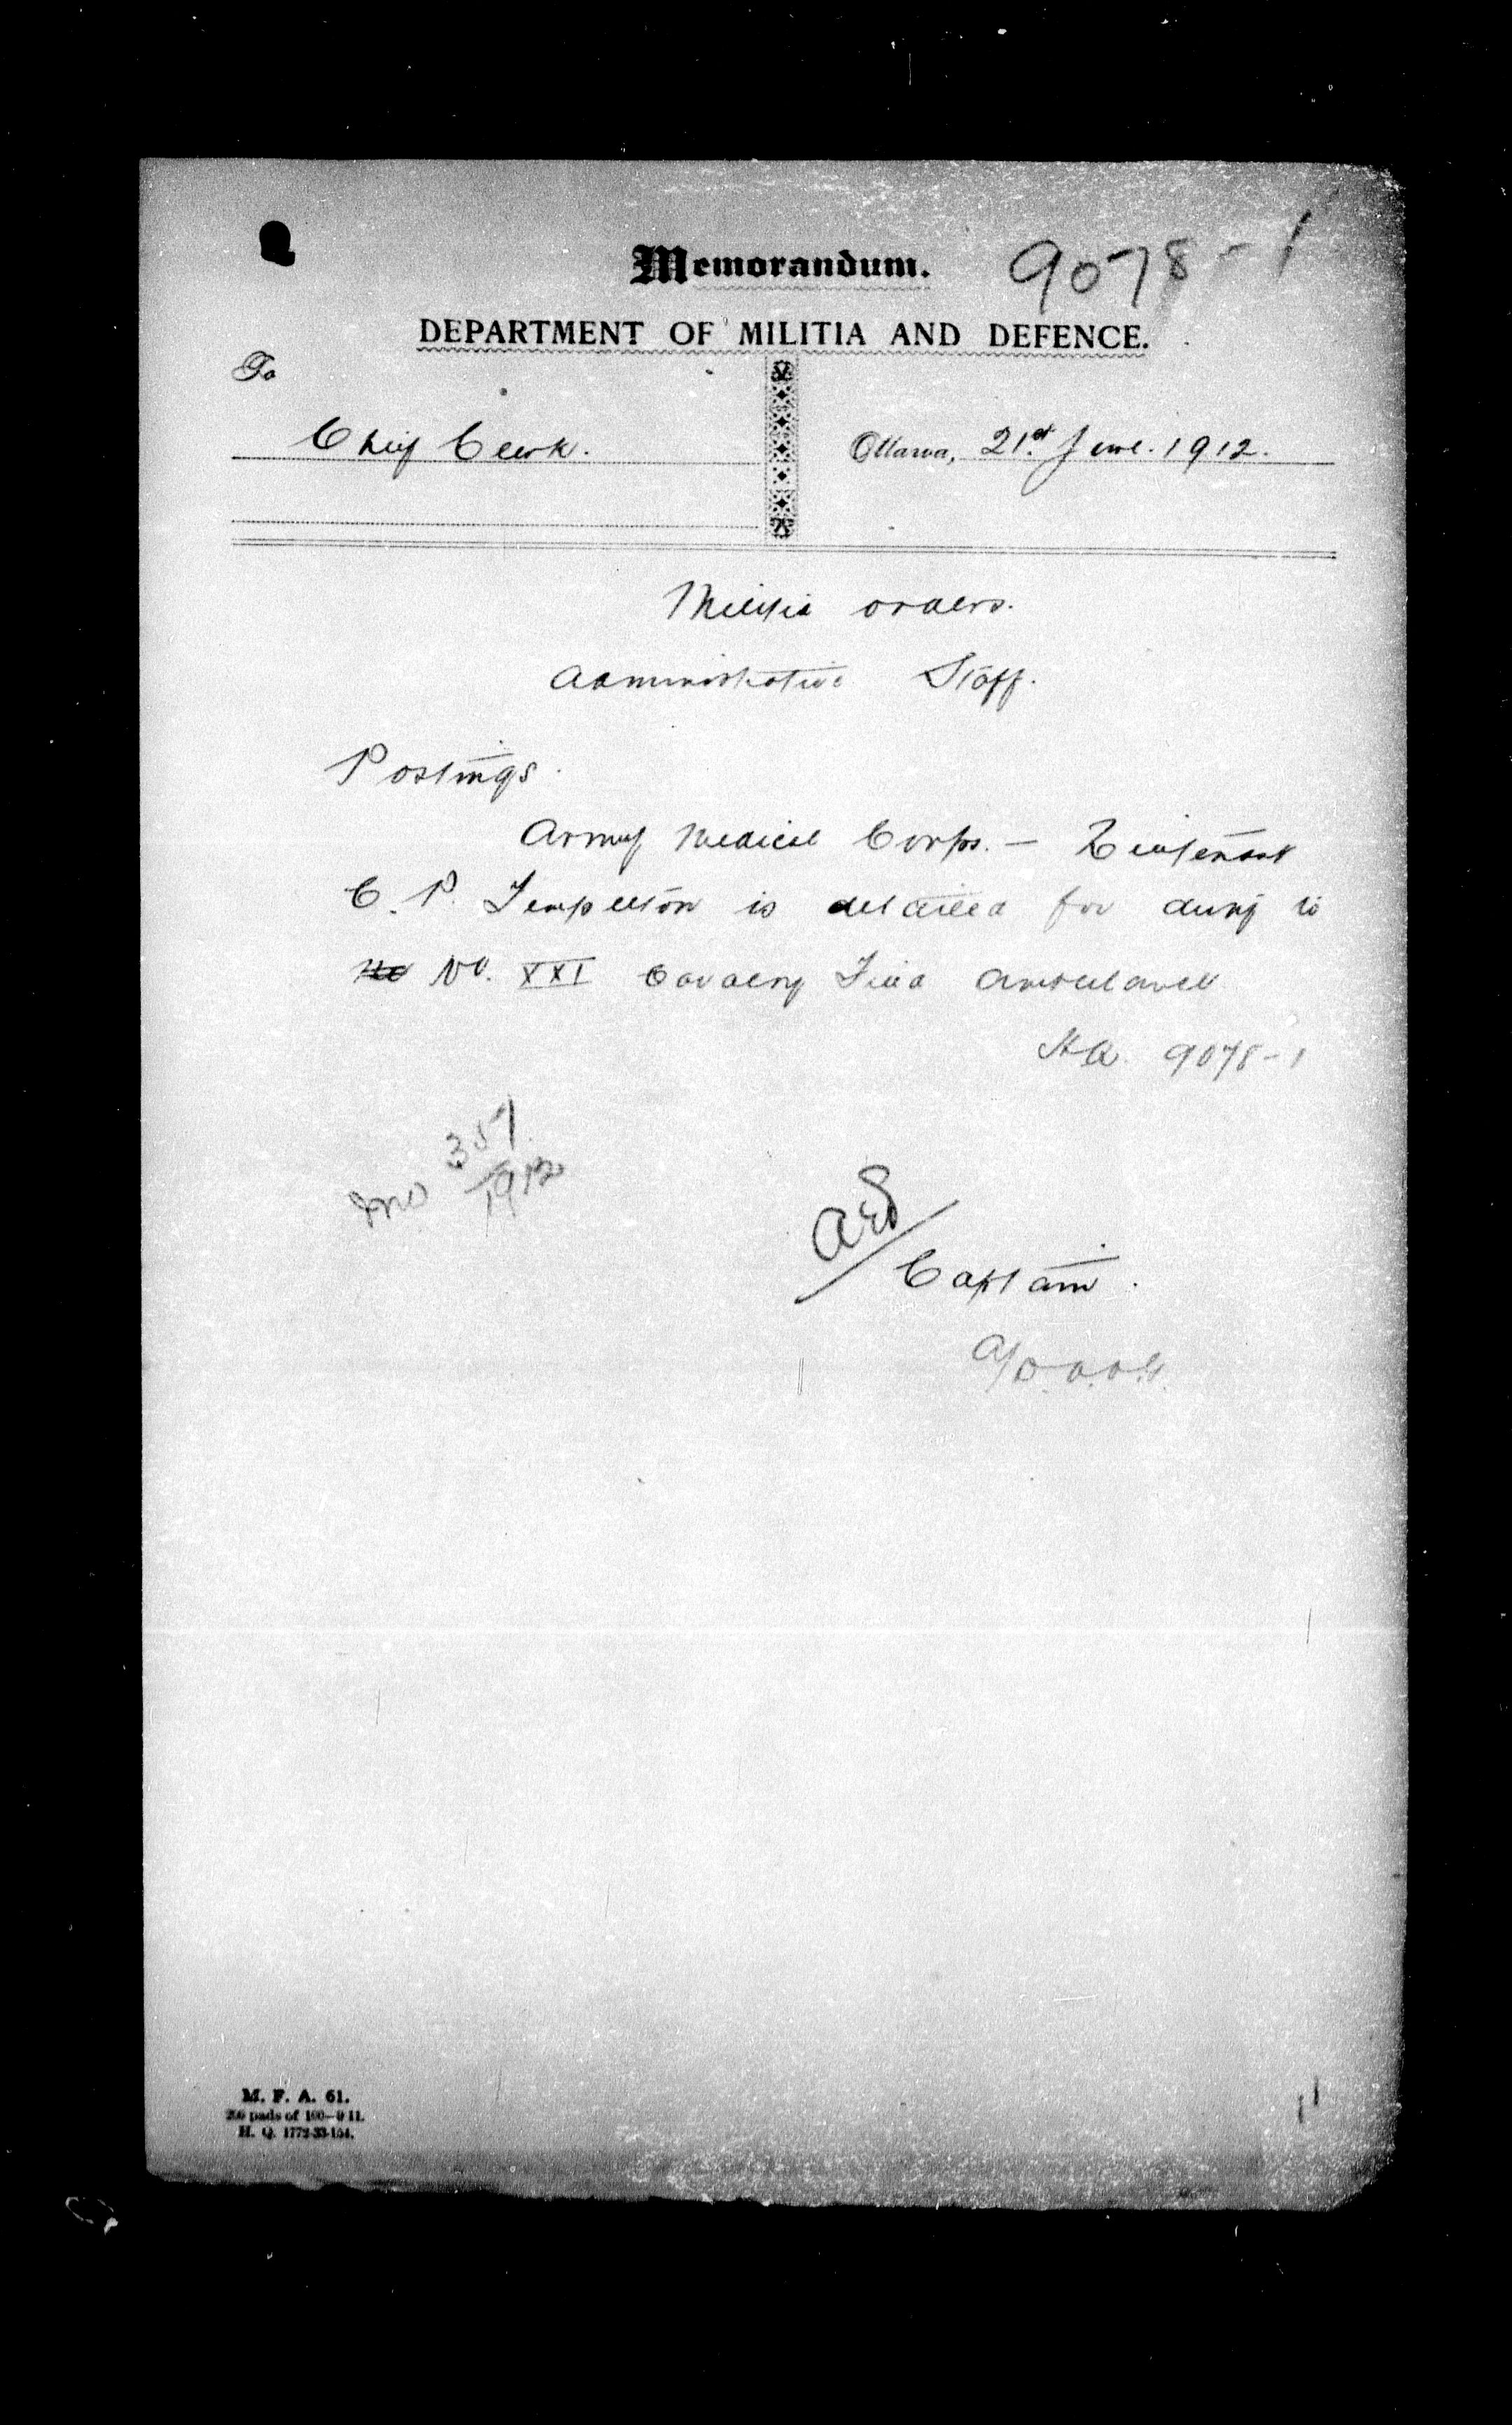 Memorandum. 9078-1
DEPARTMENT OF MILITIA AND DEFENCE.
To
Chief Clerk.
Ottawa, 21st June. 1912.
Militia orders.
Administrative Staff.
Postings.
Army Medical Corps. — Lieutenant
C. P. Templeton is detailed for duty to
No. XXI Cavalry Field Ambulance
HQ. 9078-1
357
1912
Captain.
M. F. A. 61.
200 pads of 100—9-11.
H. Q. 1772-33-154.